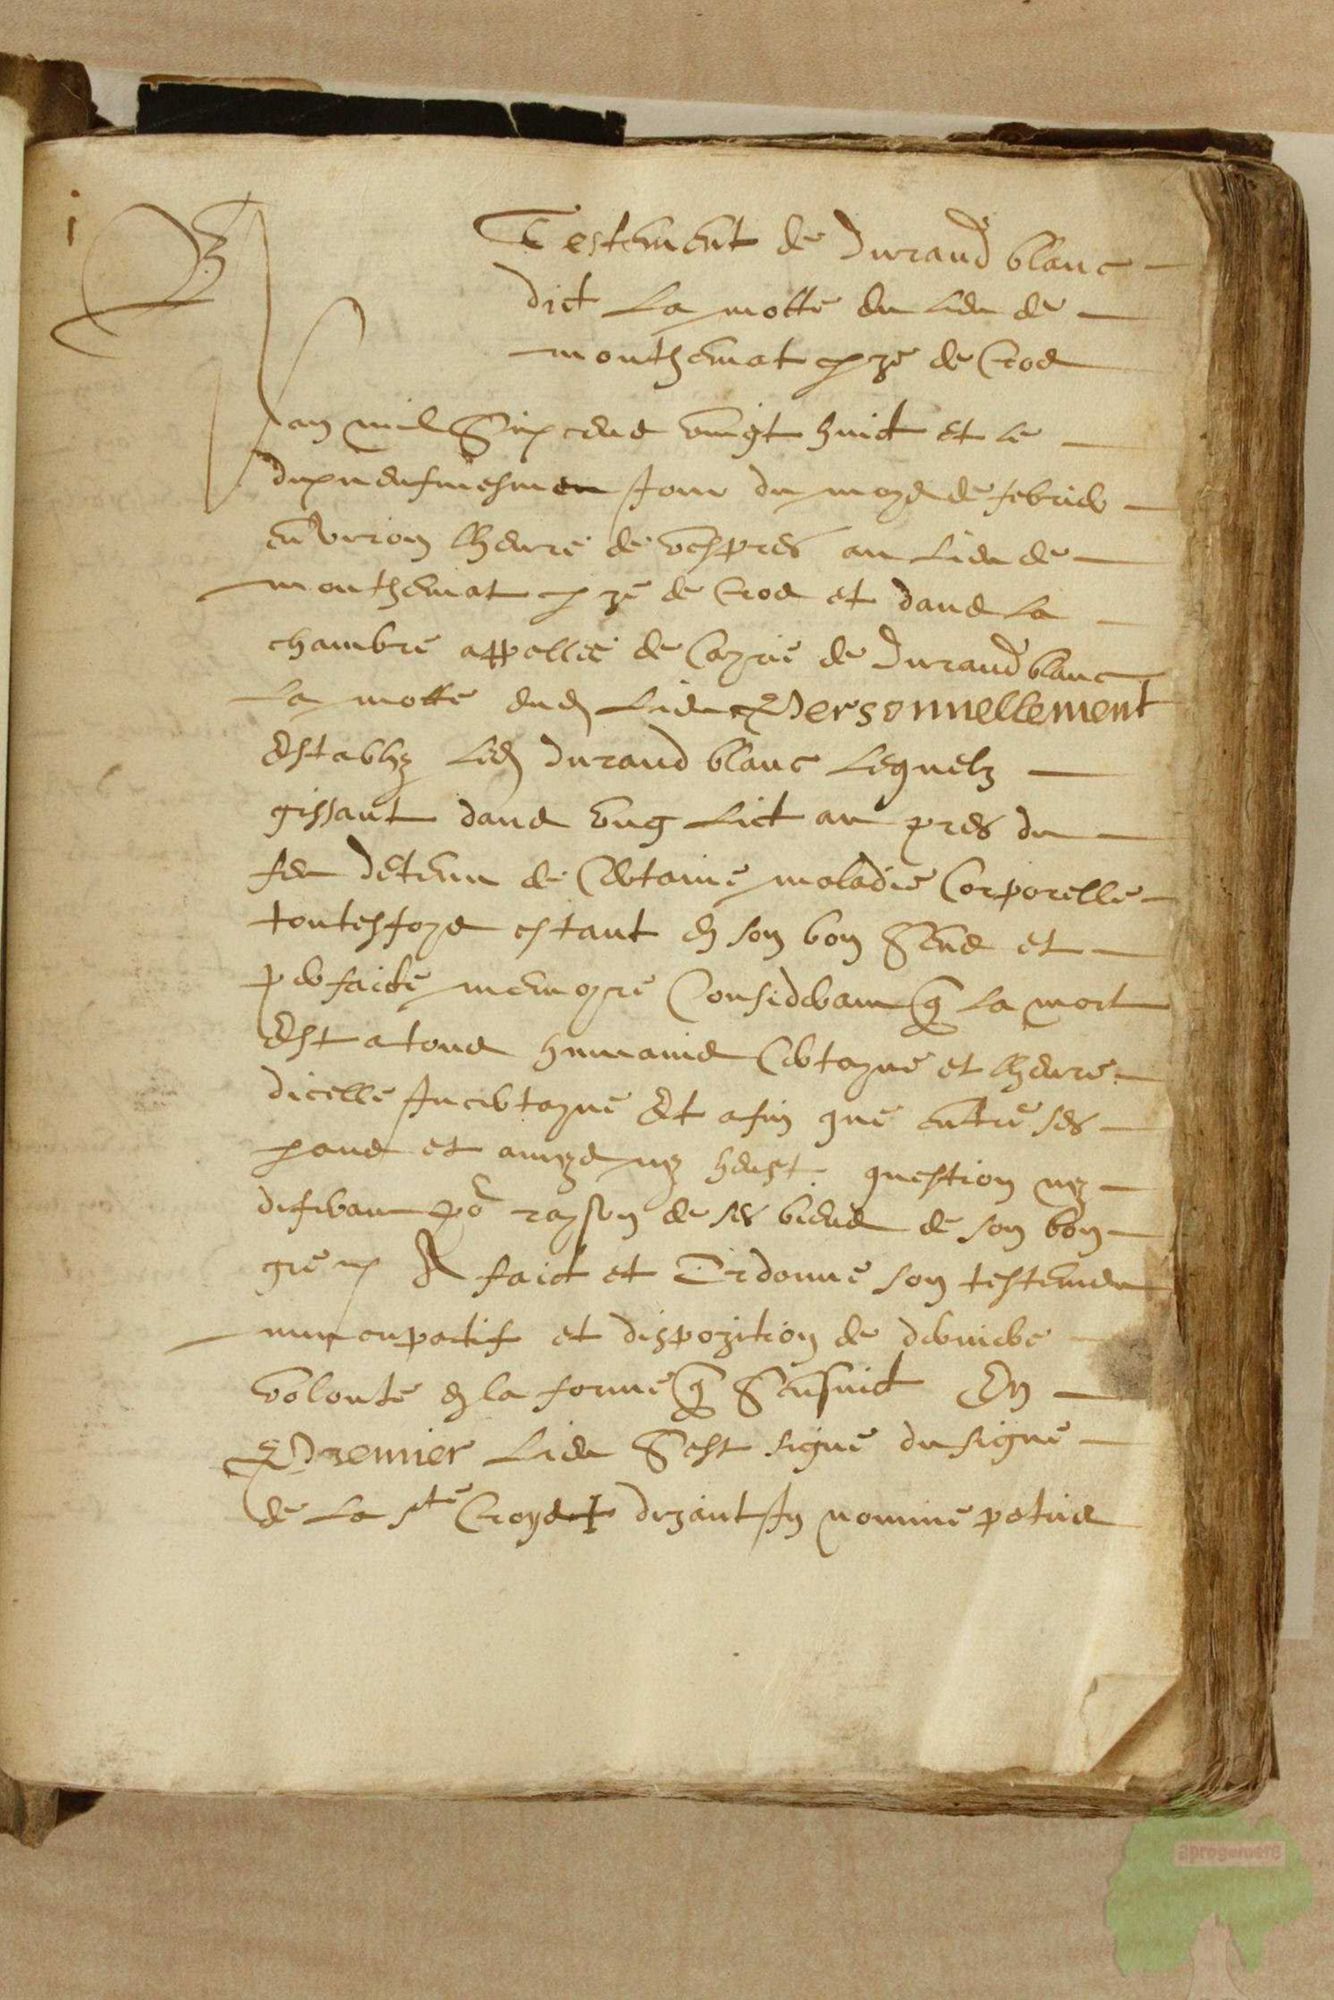 i
Testement de Durand blanc
dict La motte du Lieu de
monthemat p ze de Cros
Lan mil Six cens vingt huict et le
dixneufviesme Jour du moys de febrier
environ lheure de vespres au Lieu de
monthemat p ze de Cros et dans La
chambre appellée de Cazne de Durand blanc
La motte dud Lieu Personnellement
Establyz Led Durand blanc Lequelz
gissant dans ung Lict au pres du
feu detenu de Certaine maladie Corporelle
toutesfoys estant en son bon Sens et
perfaicte memoyre Considerant q La mort
Est a tous humains Certayne et lheure
dicelle Incertayne Et afin que entre ses
pans et amys ny heust question ny
diferant po rayson de ses biens de son bon
gre A faict et Ordonne son testemen
nuncupatif et dispozition de derniere
volonte en la forme q Sensuict En
Premier Lieu Sest signe du signe
de La ste Croys + dizant In nomine patris
aprogemere